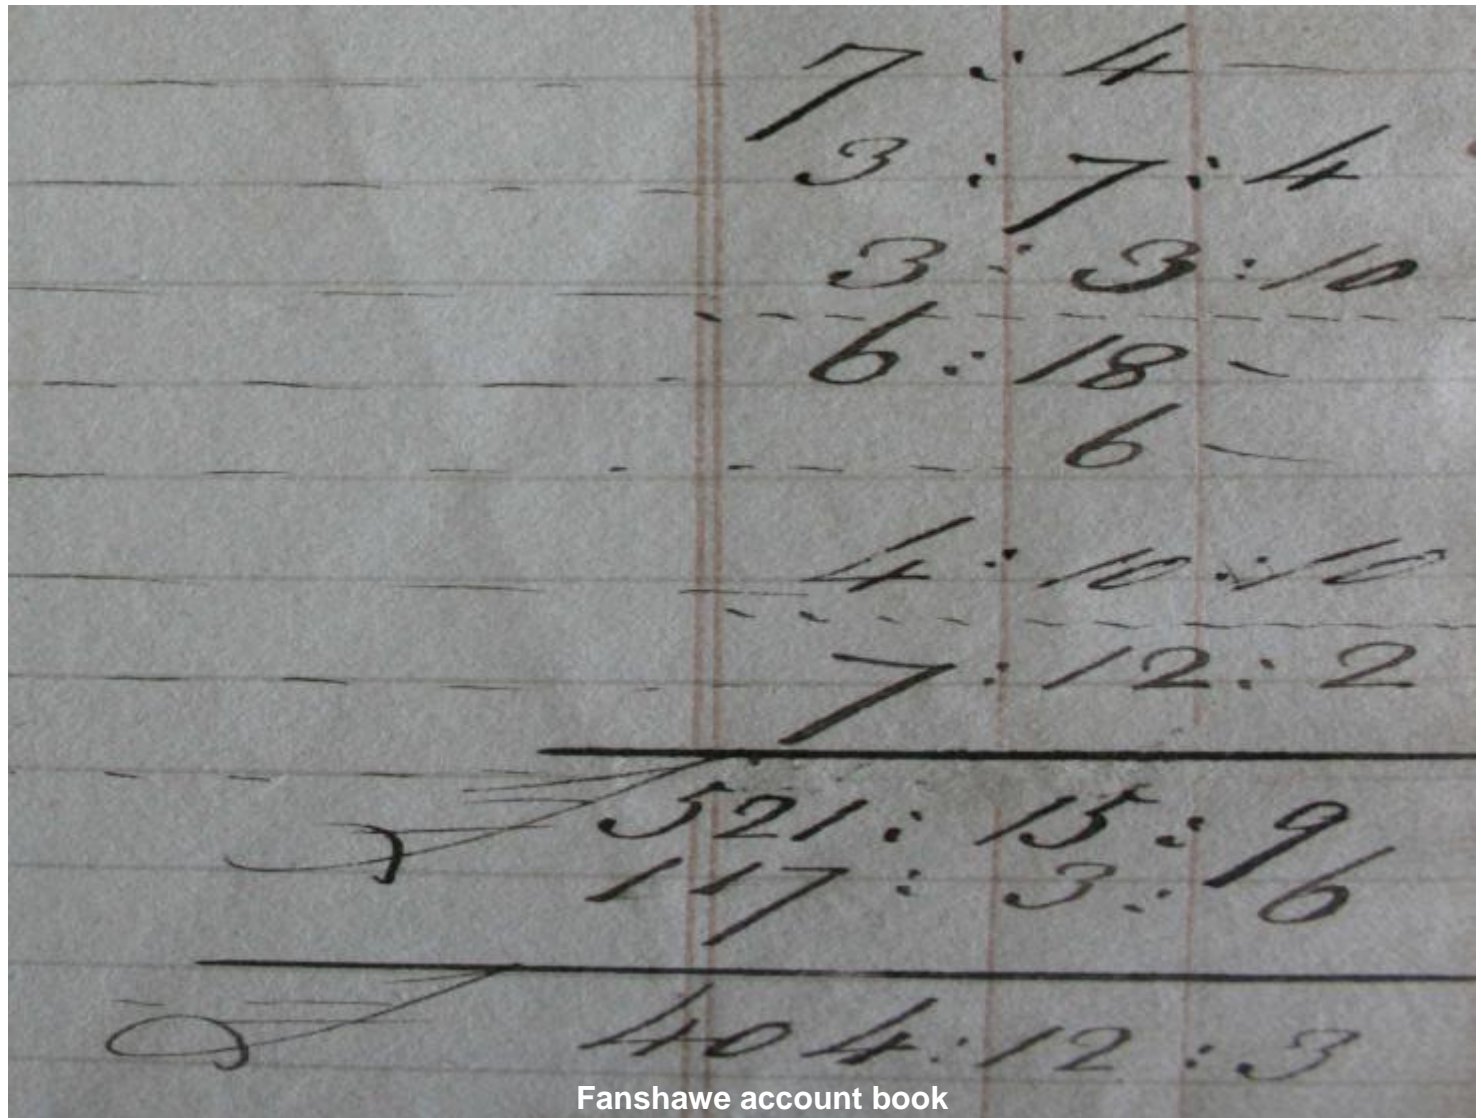 7 : 4 —
3 : 7 : 4
3 : 3 : 10
6 : 18 -
6 -
4 : 10 : 10
7 : 12 : 2
521 : 15 : 9
117 : 3 : 6
404 : 12 : 3
Fanshawe account book